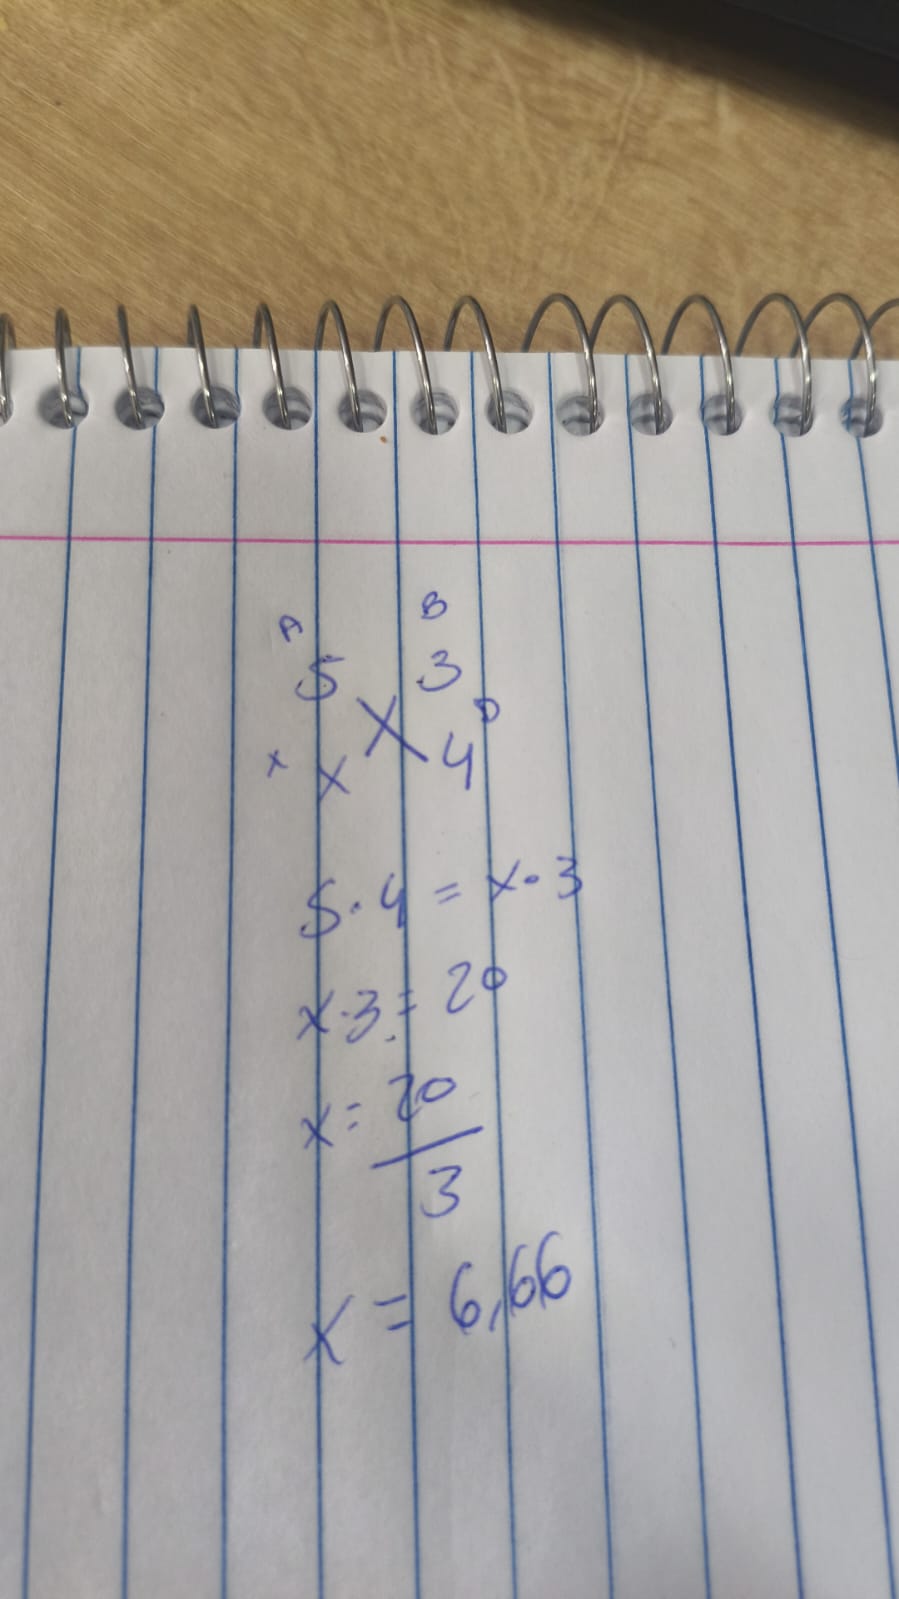 A B
5 3
D
x x X 4
5·4 = x·3
x·3 = 20
x = 20
3
x = 6,66